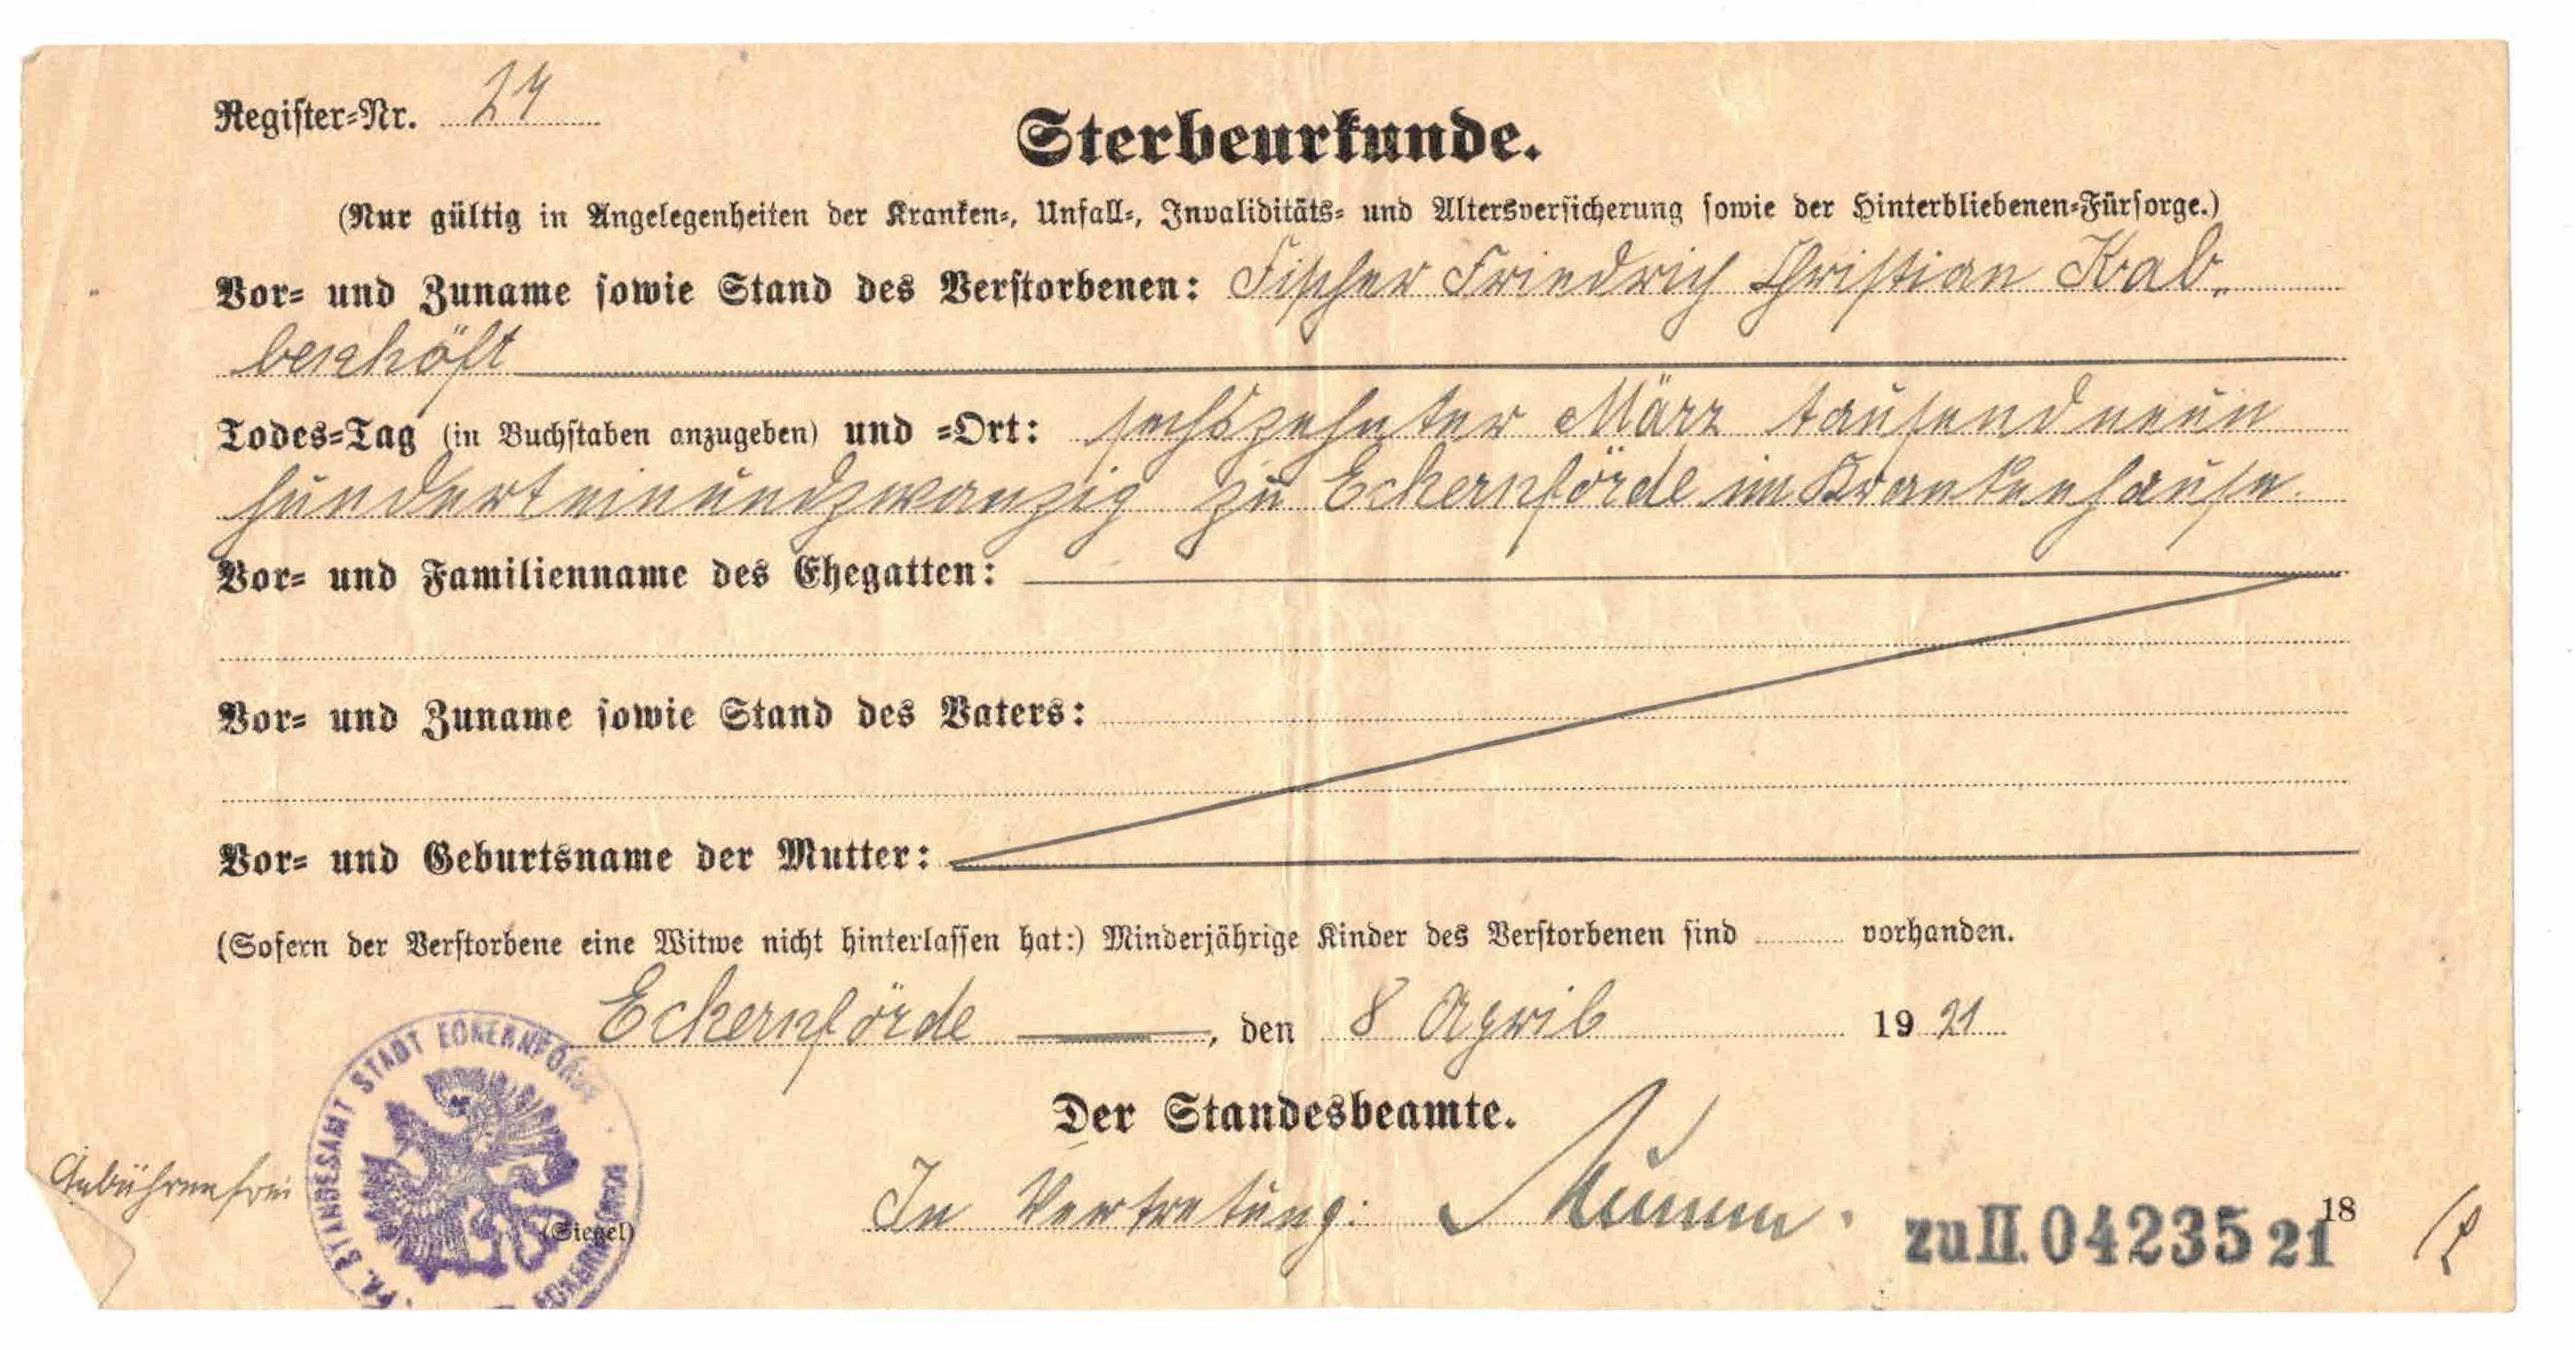 Register-Nr. 24
Sterbeurkunde.
(Nur gültig in Angelegenheiten der Kranken-, Unfall-, Invaliditäts- und Altersversicherung sowie der Hinterbliebenen-Fürsorge.)
Vor- und Zuname sowie Stand des Verstorbenen: Fischer Friedrich Christian Kab-
beshöft
Todes-Tag (in Buchstaben anzugeben) und -Ort: sechszehnter März tausendneun
hunderteinundzwanzig zu Eckernförde im Krankenhause.
Vor- und Familienname des Ehegatten:
Vor- und Zuname sowie Stand des Vaters:
Vor- und Geburtsname der Mutter:
(Sofern der Verstorbene eine Witwe nicht hinterlassen hat:) Minderjährige Kinder des Verstorbenen sind vorhanden.
Eckernförde, den 8 April 1921
STANDESAMT STADT ECKERNFÖRDE
Der Standesbeamte.
Gebührenfrei
(Siegel)
In Vertretung:
zu II. 04235 21
18